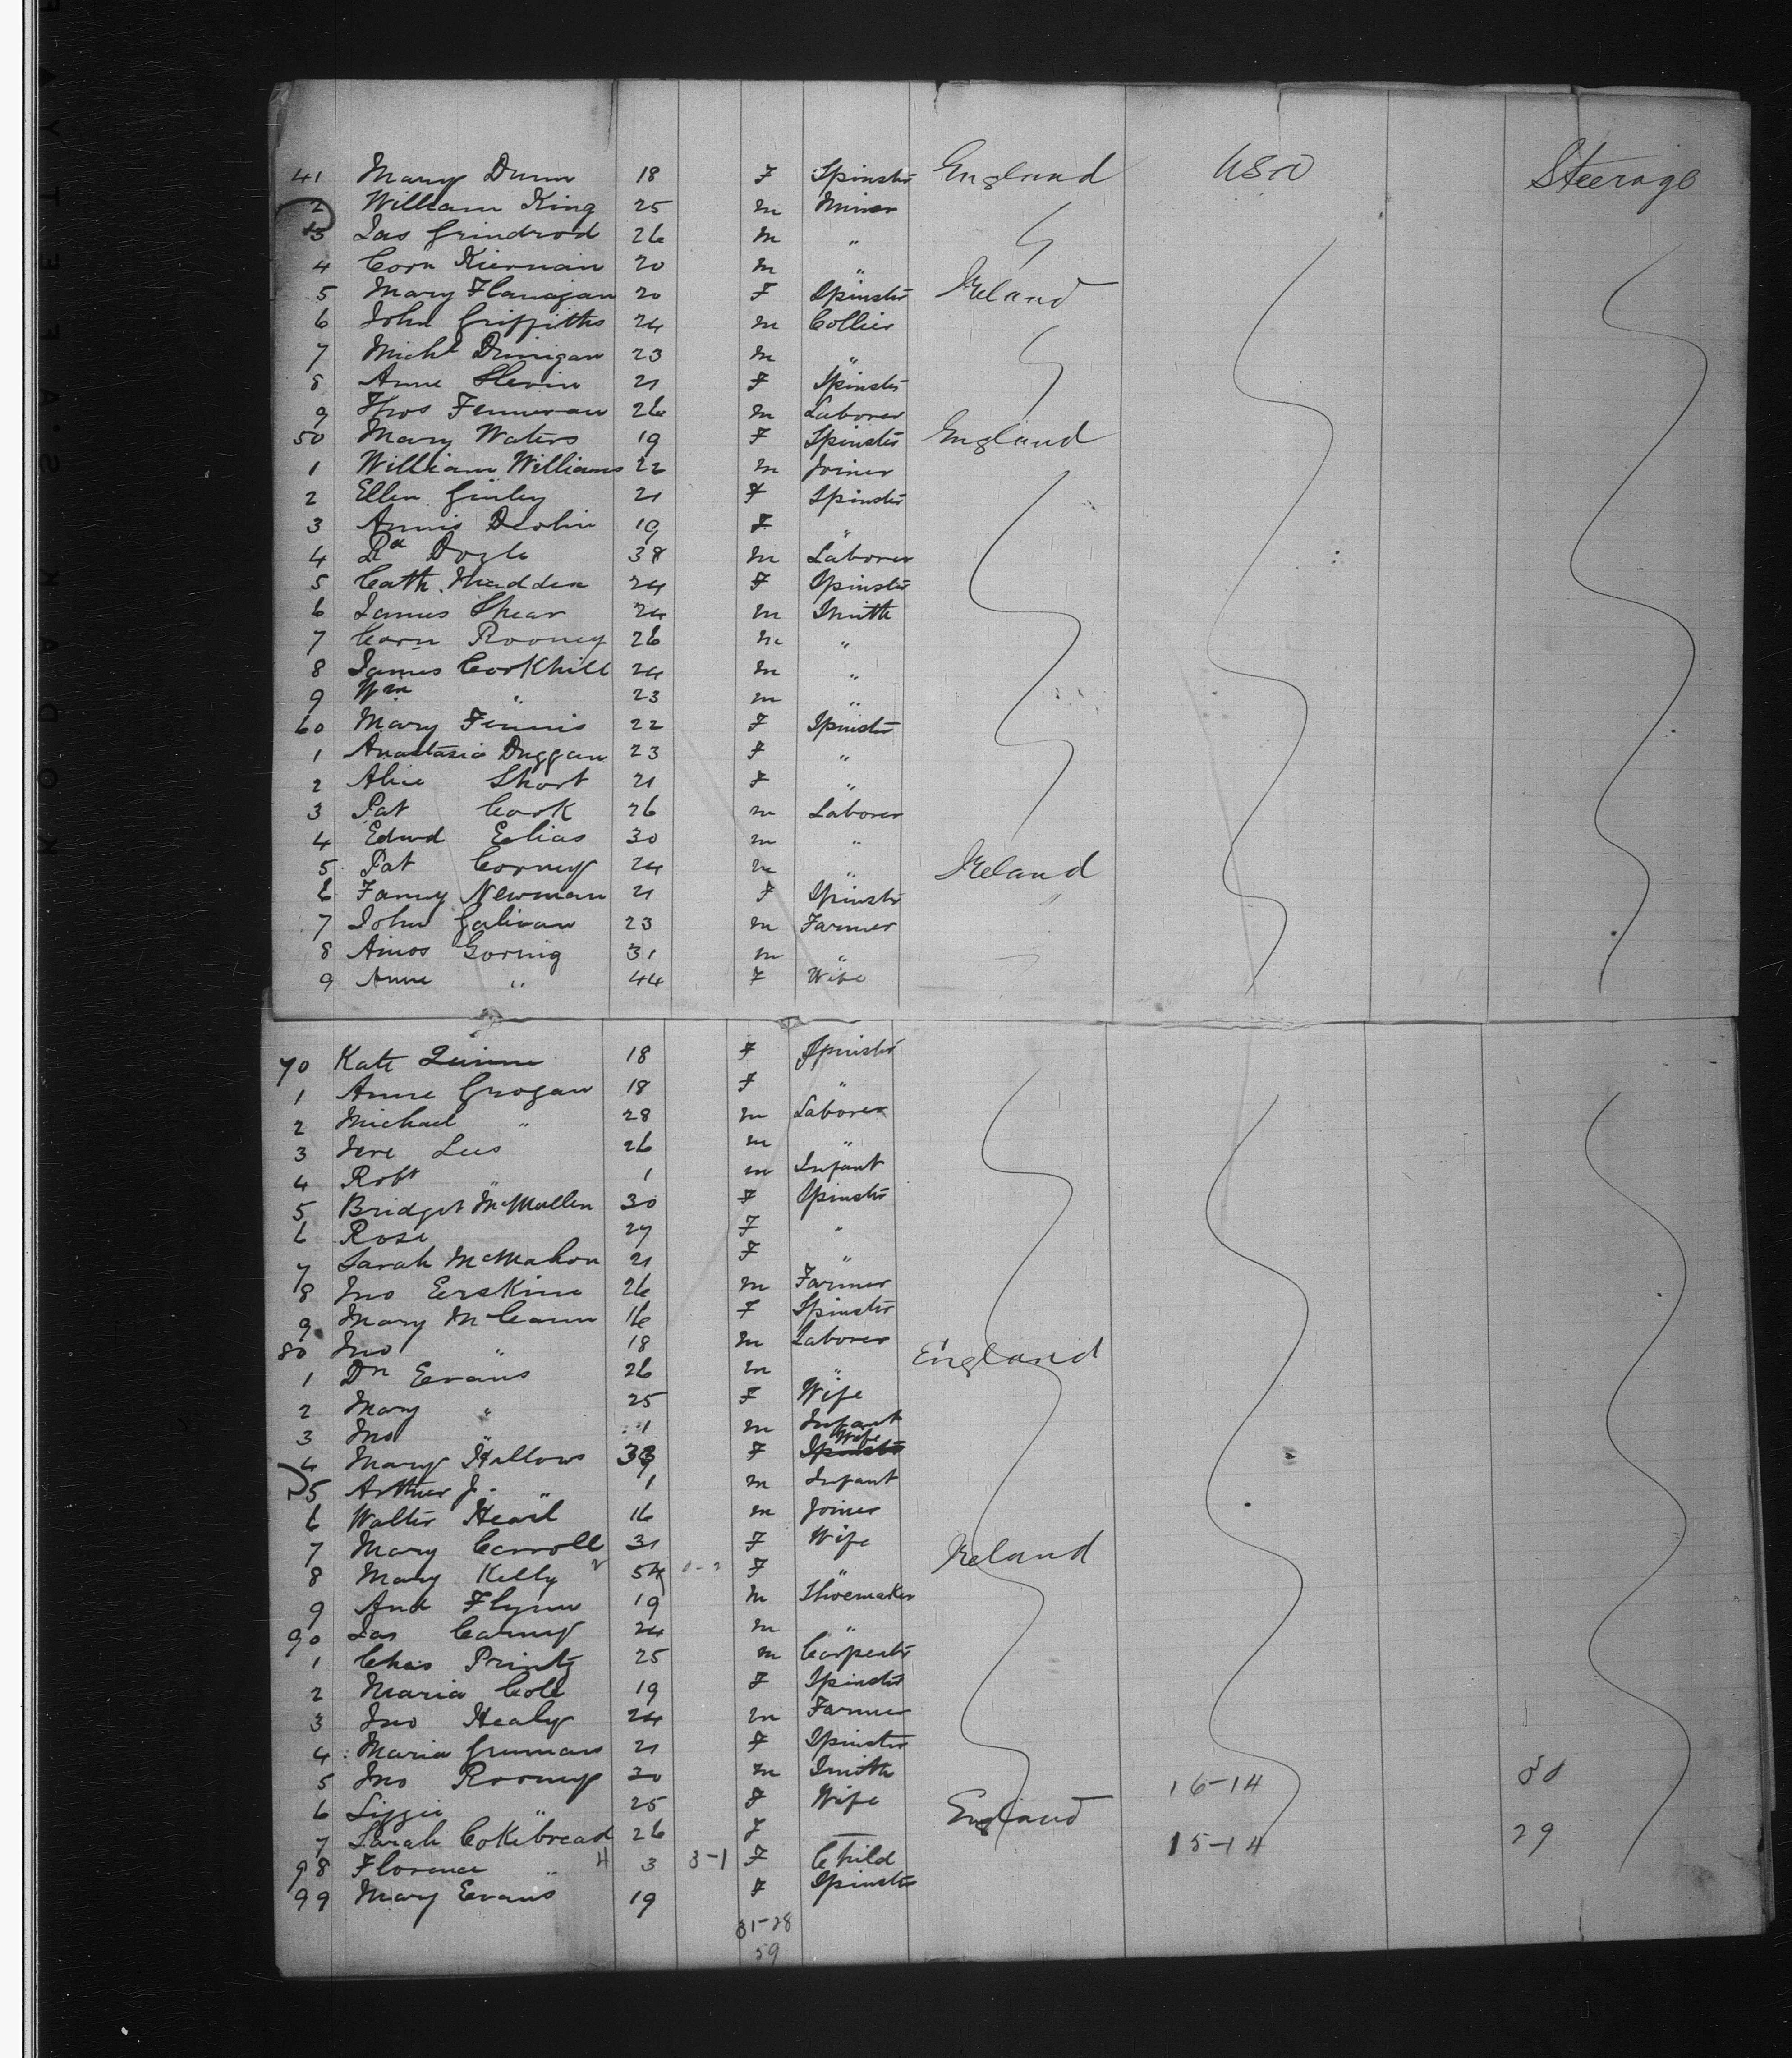 41 Mary Dunn 18 F Spinster England USA Steerage
2 William King 25 m Miner
3 Jas Grindrod 26 m "
4 Corn Kiernan 20 m "
5 Mary Flanagan 20 F Spinster Ireland
6 John Griffiths 24 m Collier
7 Michl Dunigan 23 m "
8 Anne Slevin 21 F Spinster
9 Thos Finneran 26 m Laborer
50 Mary Waters 19 F Spinster England
1 William Williams 22 m Joiner
2 Ellen Ginley 21 F Spinster
3 Annie Devlin 19 F "
4 Rd Doyle 38 m Laborer
5 Cath. Madden 24 F Spinster
6 James Shear 24 m Smith
7 Corn Rooney 26 m "
8 James Corkhill 24 m "
9 Wm " 23 m "
60 Mary Finnis 22 F Spinster
1 Anastasia Duggan 23 F "
2 Alice Short 21 F "
3 Pat Cook 26 m Laborer
4 Edwd Elias 30 m "
5 Pat Corney 24 m " Ireland
6 Fanny Newman 21 F Spinster "
7 John Galivan 23 m Farmer
8 Amos Goring 31 m "
9 Anne " 44 F Wife
70 Kate Quinn 18 F Spinster
1 Anne Grogan 18 F "
2 Michael " 28 m Laborer
3 Jere Lees 26 m "
4 Robt " 1 m Infant
5 Bridget McMullen 30 F Spinster
6 Rose 27 F "
7 Sarah McMahon 21 F "
8 Jno Erskine 26 m Farmer
9 Mary McCann 16 F Spinster
80 Jno " 18 m Laborer England
1 Dn Evans 26 m "
2 Mary " 25 F Wife
3 Jno " 1 m Infant
4 Mary Hallows F Wife Spinster
5 Arthur J. " 1 m Infant
6 Walter 16 m Joiner
7 Mary Carroll 31 F Wife Ireland
8 Mary Kelly 54 F "
9 And Flynn 19 m Shoemaker
90 Jas Carney 24 m "
1 Chas Printz 25 m Carpenter
2 Maria Cole 19 F Spinster
3 Jno Healy 24 m Farmer
4 Maria 21 F Spinster
5 Jno Rooney 30 m Smith 16-14
6 Lizzie " 25 F Wife England
7 Sarah Cokebread 26 F — 15-14 29
98 Florence " 4 3 3-1 F Child
99 Mary Evans 19 F Spinster
31-28
59